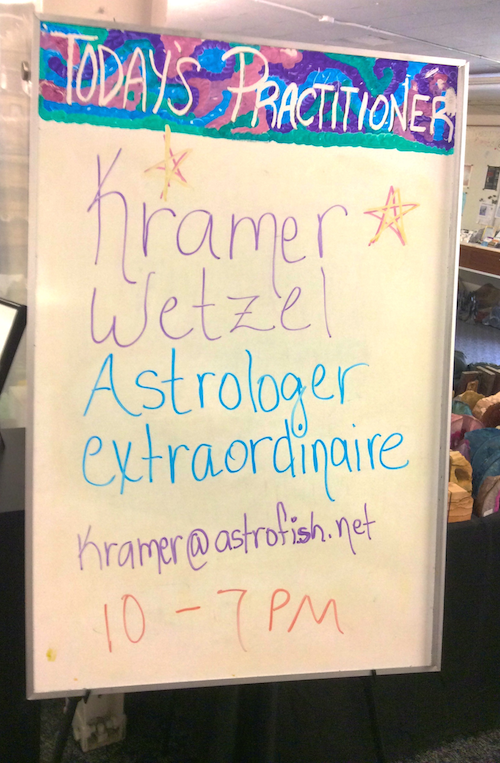 TODAY'S PRACTITIONER
Kramer
Wetzel
Astrologer
extraordinaire
Kramer@astrofish.net
10 - 7 PM